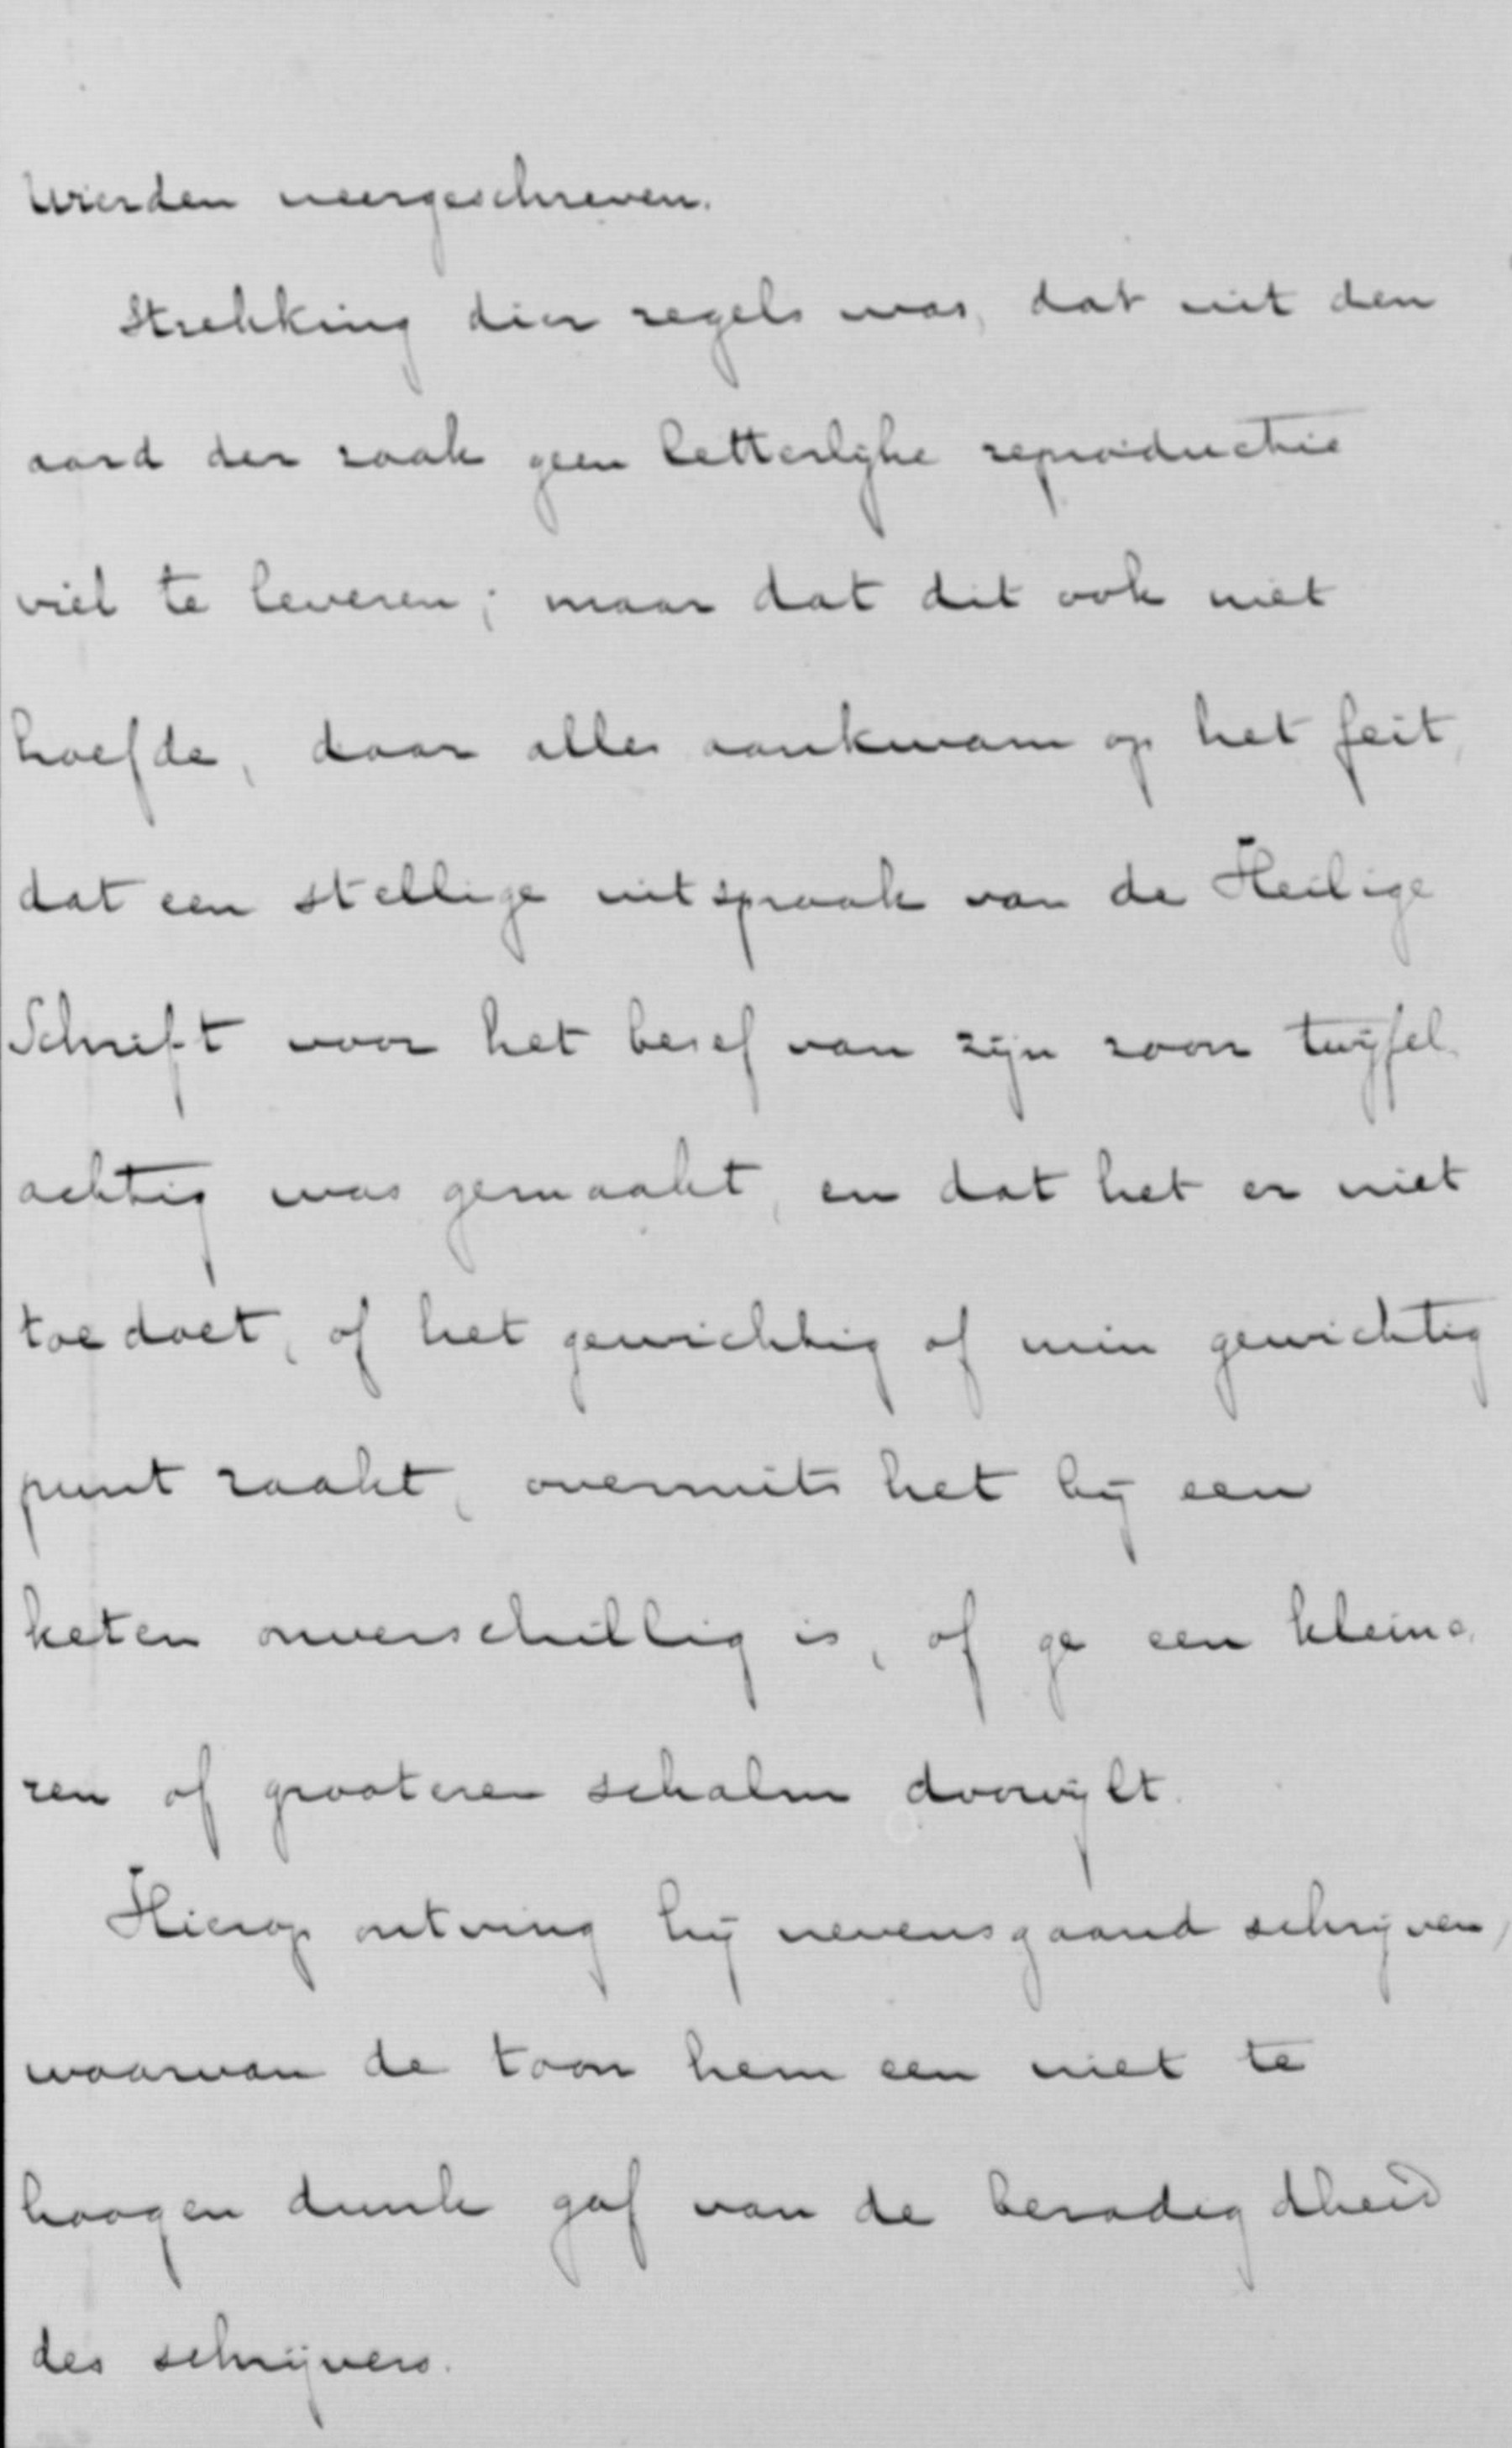 wierden neergeschreven.
Strekking dier regels was, dat uit den
aard der zaak geen letterlijke reproductie
viel te leveren; maar dat dit ook niet
hoefde, daar alles aankwam op het feit,
dat een stellige uitspraak van de Heilige
Schrift voor het besef van zijn zoon twijfel
achtig was gemaakt, en dat het er niet
toe doet, of het gewichtig of min gewichtig
punt raakt, overmits het bij een
keten onverschillig is, of ge een kleine
ren of grooteren schalm doorvijlt.
Hierop ontving hij nevensgaand schrijven,
waarvan de toon hem een niet te
hoogen dunk gaf van de beradigdheid
des schrijvers.